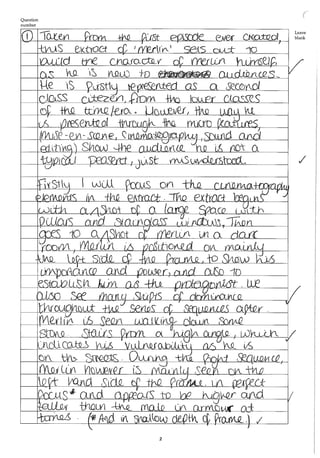 Question
number
Leave
blank
1 Taken from the first episode ever created,
this extract of 'merlin' sets out to
build the character of merlin himself
as he is new to audiences.
He is firstly represented as a second
class citezen, from the lower classes
of the time/era. However, the way he
is presented through the micro features,
(mise-en-scene, cinematography, sound and
editing) show the audience he is not a
typical peasent, just misunderstood.
Firstly I will focus on the cinematography
elements in the extract. The extract begins
with a shot of a large space with
pillars and stainglass windows, Then
goes to a shot of merlin in a dark
room, Merlin is positioned on mainly
the left side of the frame, to show his
importance and power, and also to
establish him as the protagonist. We
also see many shifts of dominance
throughout the series of sequences after
Merlin is seen walking down some
stone stairs from a high angle, which
indicates his vulnerability as he is
on the streets. During the fight sequence,
Merlin however is mainly seen on the
left hand side of the frame. in perfect
focus* and appears to be higher and
taller than the male in armour at
times. (*And in shallow depth of frame.)
3